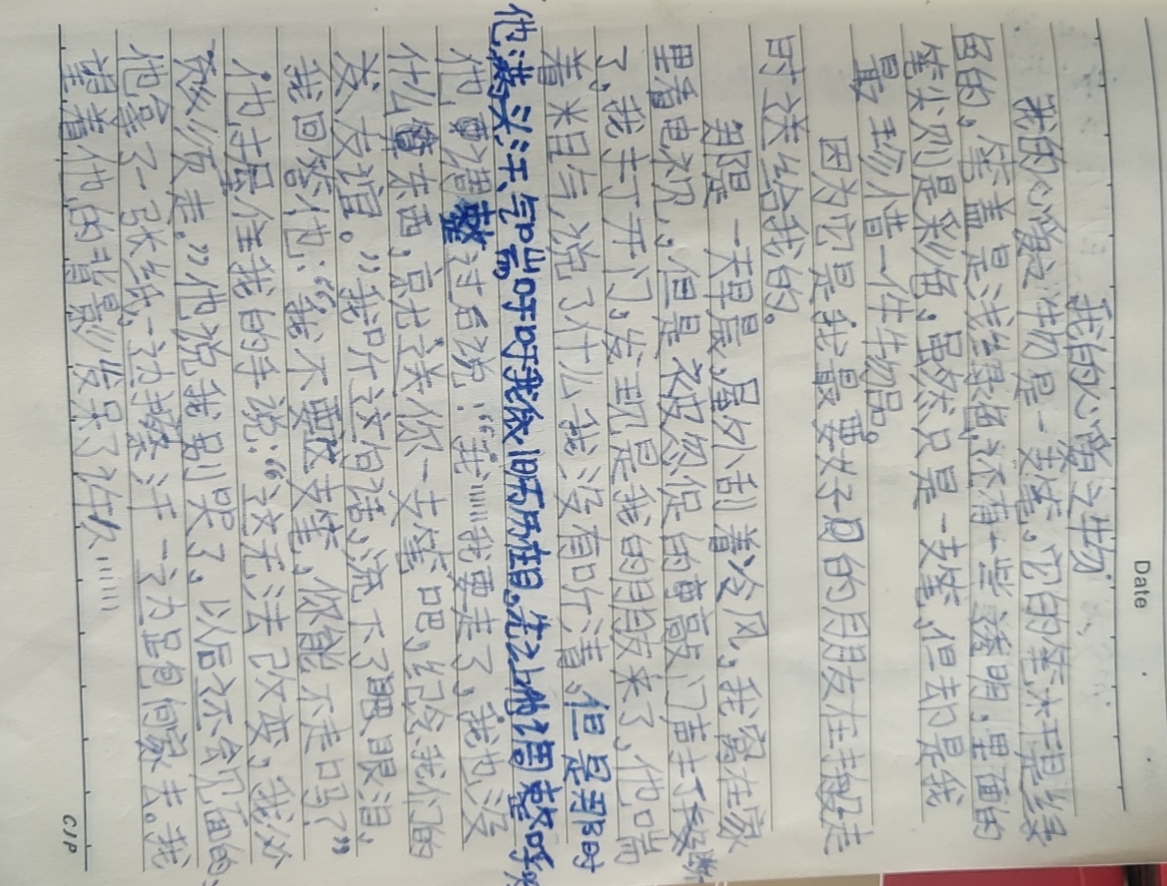 Date
我的心爱之物
我的心爱之物是一支笔,它的笔杆是绿
色的,笔盖是浅绿色,还有一些透明,里面的
笔尖则是彩色,虽然只是一支笔,但却是我
最珍惜一件物品。
因为它是我最要好的朋友在搬走
时送给我的。
那是一天早晨,屋外刮着冷风,我窝在家
里看电视,但是被急促的敲门声打断
了,我打开门,发现是我的朋友来了,他喘
着粗气说了什么我没有听清,但是那时
他满头汗与呼呼我依旧历历在目。先上前调整呼吸
他调整过后说:“我……我要走了,我也没
什么东西,就送你一支笔吧,纪念我们的
友谊。”我听这句话,流下了眼泪,
我回答他:“我不要这支笔,你能不走吗?”
他拉住我的手说:“这无法改变,我必
须走。”他说我别哭了,以后还会见面的,
他拿了一张纸一边擦汗一边跑向家去。我
望着他的背影发呆了许久……
CJP